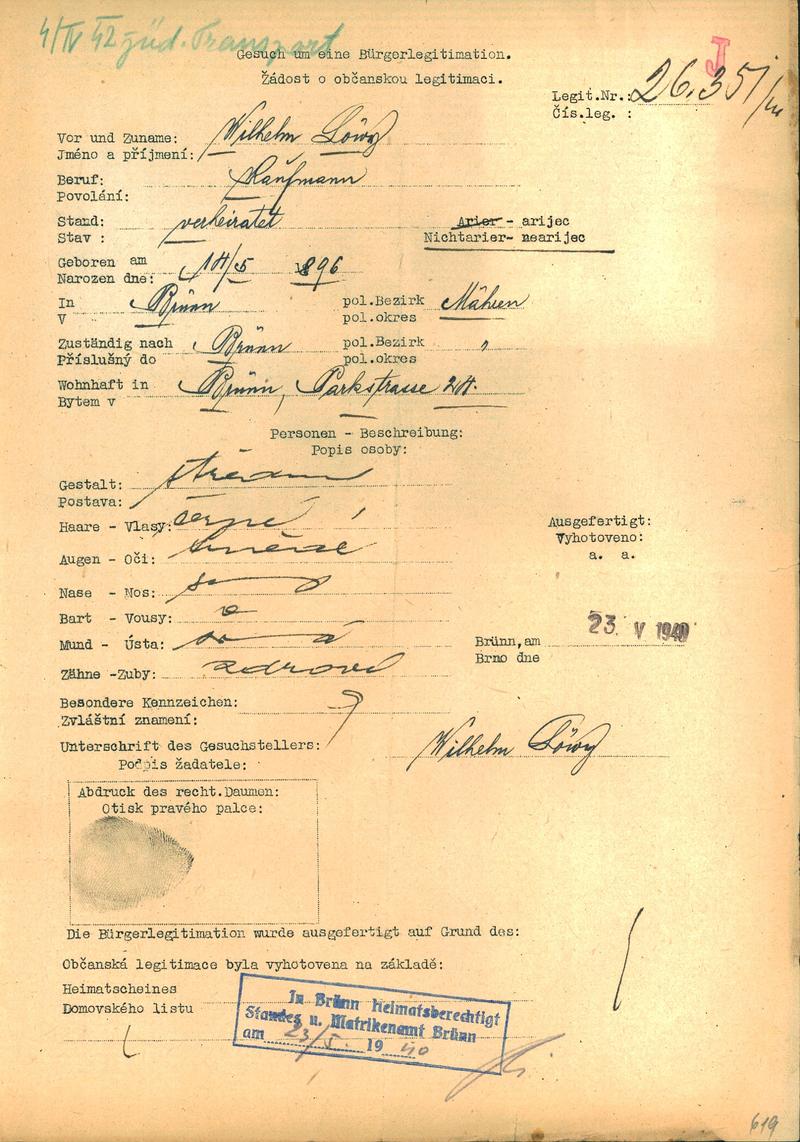 4/IV 42 jüd. Transport
Gesuch um eine Bürgerlegitimation.
Žádost o občanskou legitimaci.
J
Legit.Nr.: 26.351/
Čís.leg. :
Vor und Zuname: Wilhelm Löwy
Jméno a příjmení:
Beruf: Kaufmann
Povolání:
Stand: verheiratet
Stav :
Arier - arijec
Nichtarier- nearijec
Geboren am 14/5 1896
Narozen dne:
In Brünn pol.Bezirk Mähren
V pol.okres
Zuständig nach Brünn pol.Bezirk "
Příslušný do pol.okres
Wohnhaft in Brünn, Parkstrasse 24.
Bytem v
Personen - Beschreibung:
Popis osoby:
Gestalt: střední
Postava:
Haare - Vlasy: černé
Augen - Oči: hnědé
Nase - Nos:
Bart - Vousy:
Mund - Ústa:
Zähne -Zuby: zdravé
Ausgefertigt:
Vyhotoveno:
a. a.
Brünn,am 23. V 1940
Brno dne
Besondere Kennzeichen:
Zvláštní znamení:
Unterschrift des Gesuchstellers: Wilhelm Löwy
Podpis žadatele:
Abdruck des recht.Daumen:
Otisk pravého palce:
Die Bürgerlegitimation wurde ausgefertigt auf Grund des:
Občanská legitimace byla vyhotovena na základě:
Heimatscheines
Domovského listu
In Brünn heimatsberechtigt
Standes u. Matrikenamt Brünn
am 23/5. 19 40
619